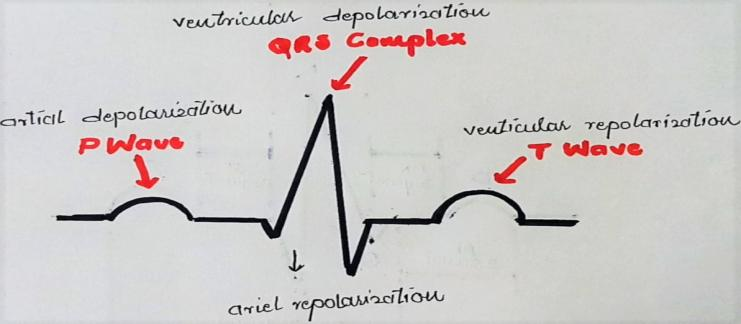 ventricular depolarization
QRS Complex
artial depolarization
P Wave
venticular repolarization
T Wave
ariel repolarization